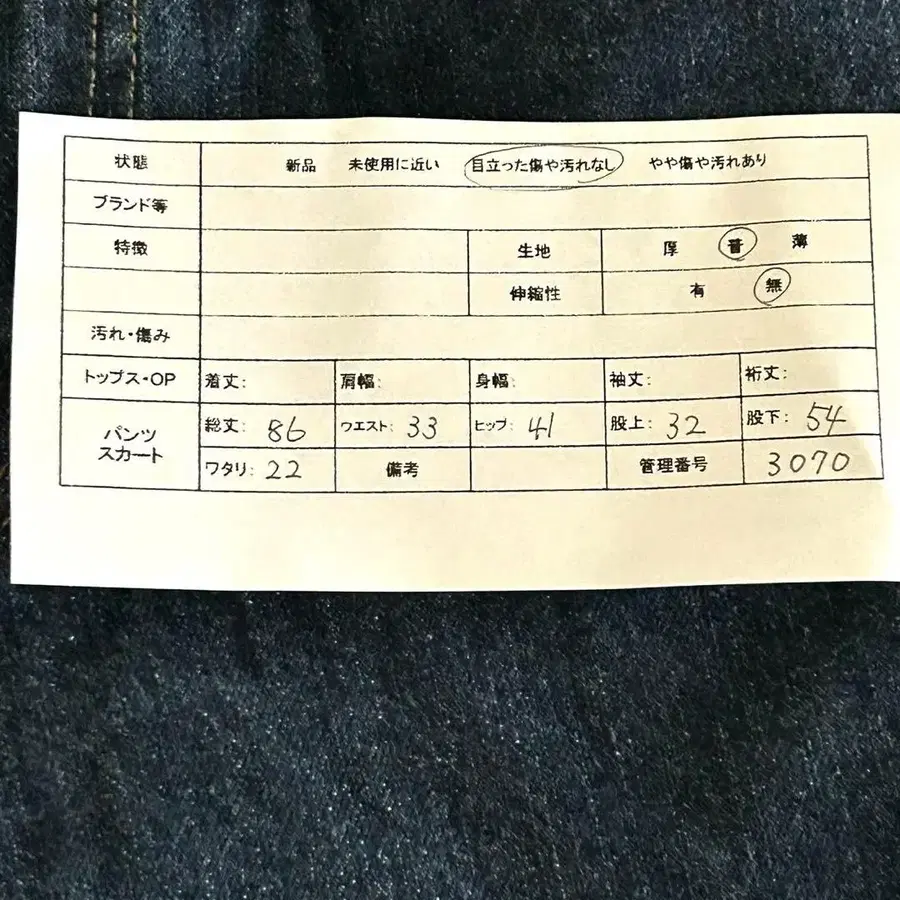 状態 新品 未使用に近い 目立った傷や汚れなし やや傷や汚れあり
ブランド等
特徴 生地 厚 普 薄
伸縮性 有 無
汚れ・傷み
トップス・OP 着丈: 肩幅: 身幅: 袖丈: 裄丈:
パンツ スカート 総丈: 86 ウエスト: 33 ヒップ: 41 股上: 32 股下: 54
ワタリ: 22 備考 管理番号 3070